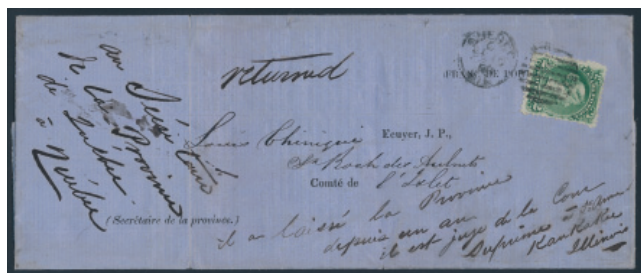 au Secrétaire
de la Province
de Québec
à Québec
(Secrétaire de la province.)
returned
(FRANC DE PORT
Louis Chiniquy Ecuyer, J. P.,
St Roch des Aulnets
Comté de l'Islet
il a laissé la Province
depuis un an
il est juge de la Cour
Suprême à
Kankakee
Illinois